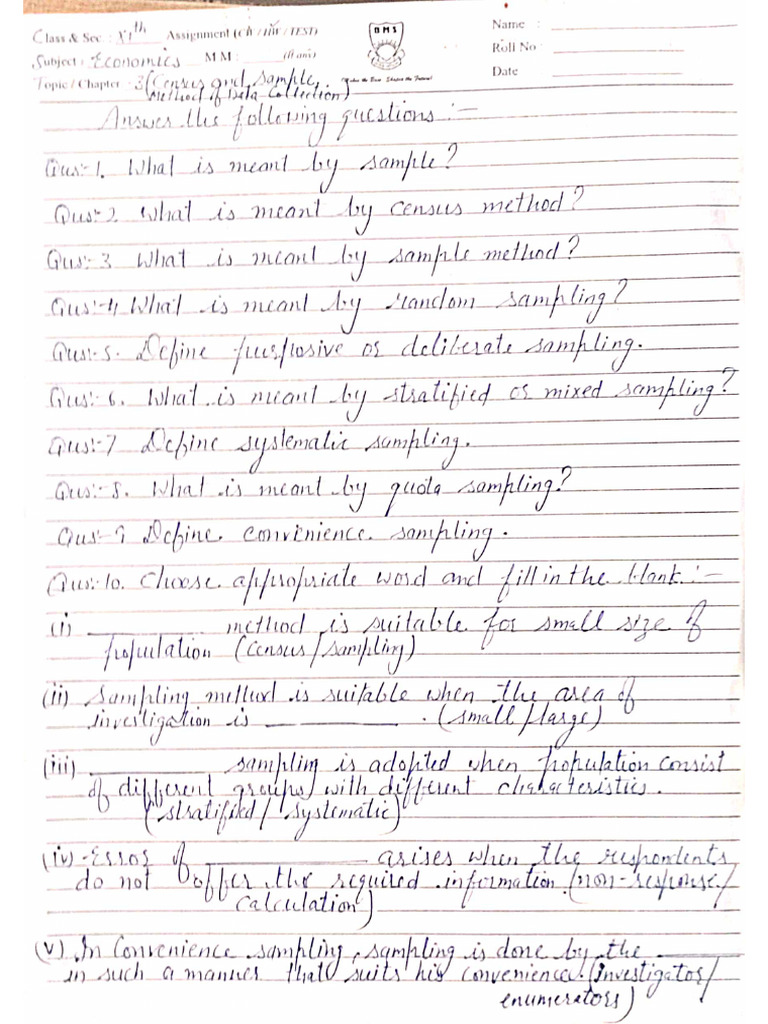 Class & Sec : XIth Assignment (CW / HW / TEST)
Name :
Subject : Economics M M : (ft ans)
Roll No
Topic / Chapter : 3 (Census and Sample
Method of Data Collection)
Date
BMS
Answer the following questions :-
Qus:-1. What is meant by sample?
Qus:-2. What is meant by census method?
Qus:-3 What is meant by sample method?
Qus:-4 What is meant by random sampling?
Qus:-5. Define purposive or deliberate sampling.
Qus:-6. What is meant by stratified or mixed sampling?
Qus:-7 Define systematic sampling.
Qus:-8. What is meant by quota sampling?
Qus:-9 Define convenience sampling.
Qus:-10. Choose appropriate word and fill in the blank :-
(i) ________ method is suitable for small size of
population (census/sampling)
(ii) Sampling method is suitable when the area of
investigation is ________ . (small/large)
(iii) ________ sampling is adopted when population consist
of different groups with different characteristics.
(stratified/systematic)
(iv) Error of ________ arises when the respondents
do not offer the required information. (non-response/
calculation)
(v) In Convenience sampling, sampling is done by the ________
in such a manner that suits his convenience. (investigator/
enumerators)